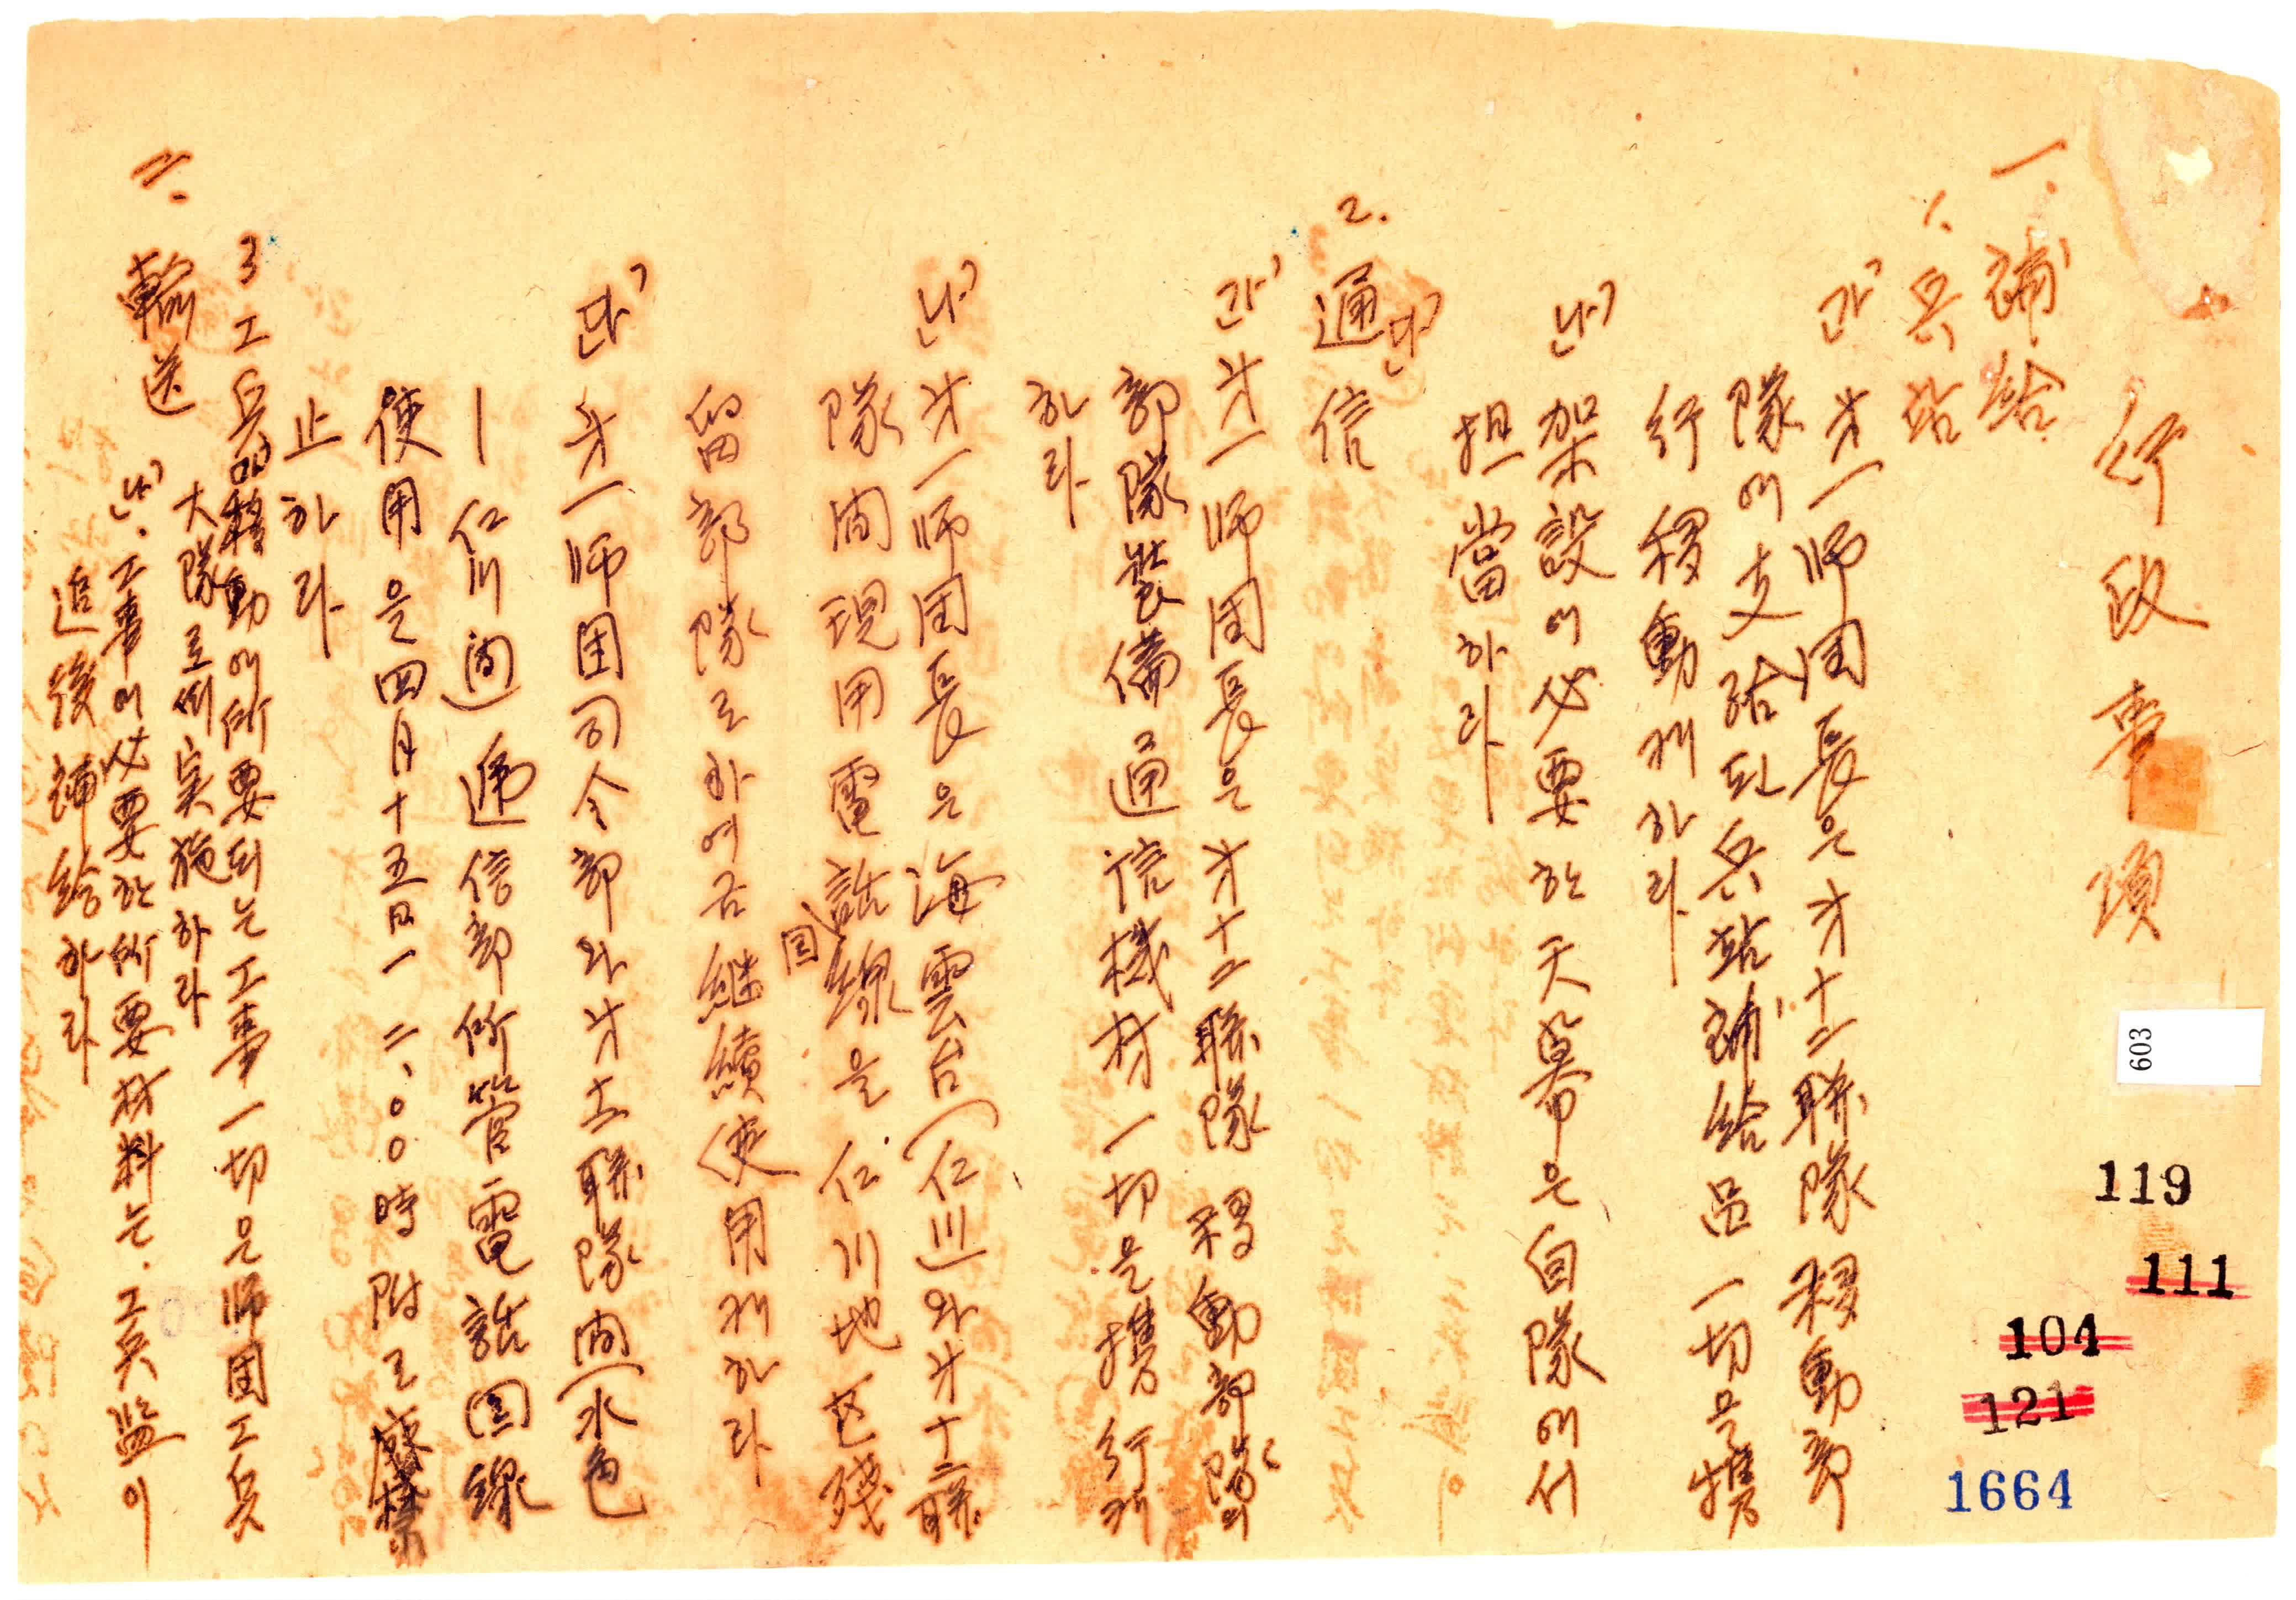 行政事項
一. 補給
1. 兵站
가) 才一師団長은 才十二聯隊 移動部
隊에 支給된 兵站補給品 一切을 携
行 移動케하라
나) 架設에 必要한 天幕은 自隊에서
担當하라
다)
2. 通信
가) 才一師団長은 才十二聯隊 移動部隊의
部隊裝備通信機材 一切을 携行케
하라
나) 才一師団長은 海雲台(仁川)와 才十二聯
隊間 現用電話回線을 仁川地区残
留部隊로 하여금 継續使用케하라
다) 才一師団司令部와 才十二聯隊間(水色
―仁川間) 逓信部所管電話回線
使用은 四月十五日 一二、〇〇時附로 廃
止하라
3 工兵
가) 移動에 所要되는 工事 一切은 師団工兵
大隊로 実施하라
나). 工事에 必要한 所要材料는. 工兵監이
追後 補給하라
二. 輸送
603
119
111
104
121
1664